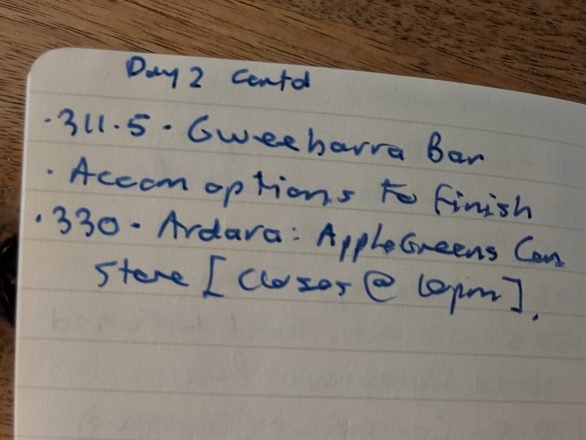 Day 2 Contd
· 311.5 - Gweebarra Bar
· Accom options to finish
· 330 - Ardara: AppleGreens Con
Store [Closes @ 10pm].